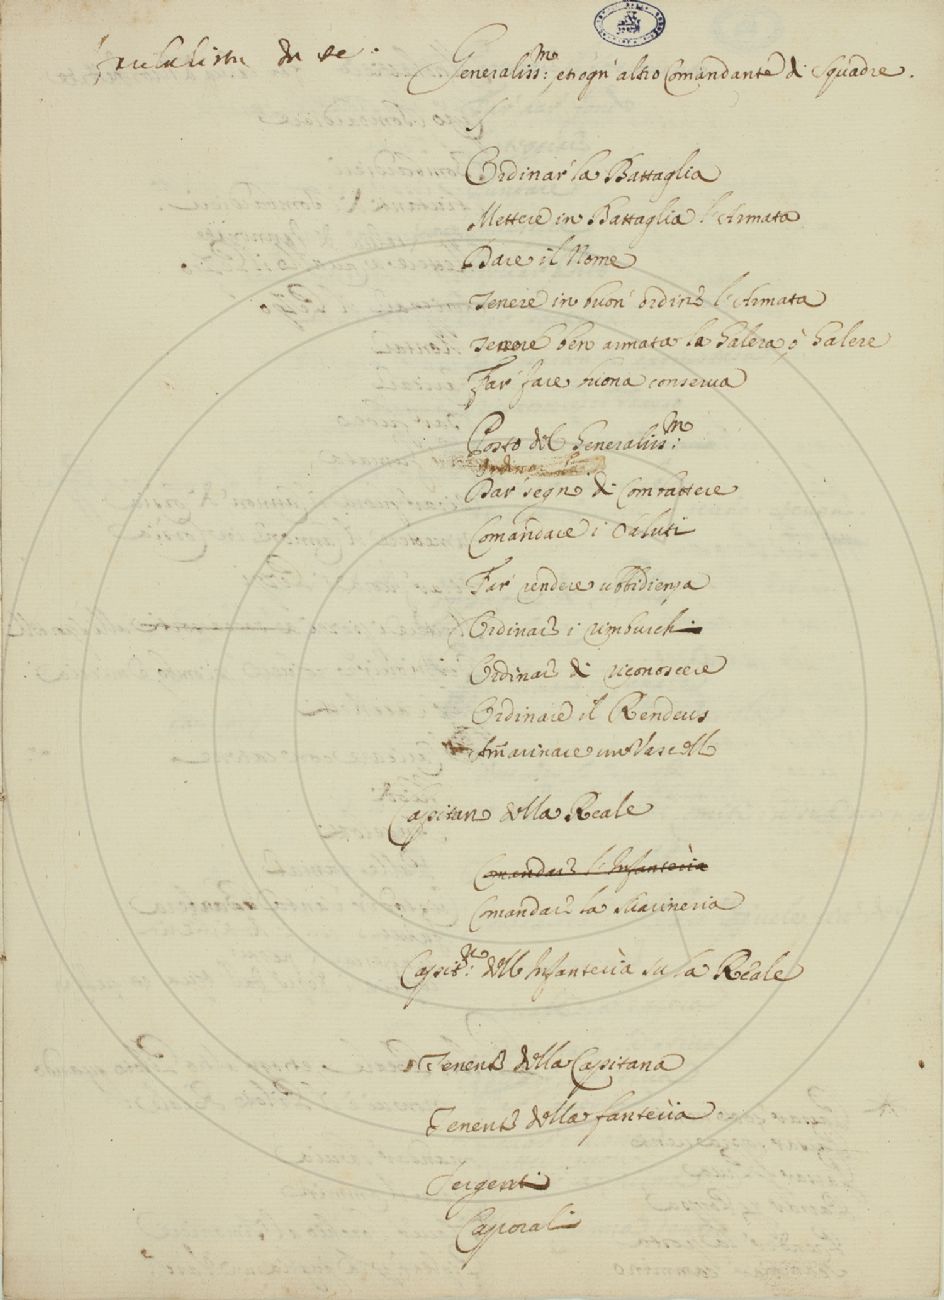 Generaliss:mo, et ogn' altro Comandante di Squadre.
Ordinar' la Battaglia
Mettere in Battaglia l'Armata
Dare il Nome
Tenere in buon' ordine l'Armata
Tenere ben armata la Galera, ò Galere
Far' fare buona conserva
Posto del Generaliss:mo
Dar' segno di Combattere
Comandare i Saluti
Far' rendere ubbidienza
Ordinare i rimburchi
Ordinare di riconoscere
Ordinare il Rendeus
Ammarinare un Vascello
Capitan della Reale
Comandare l'Infanteria
Comandare la Marineria
Capit:no dell' Infanteria su la Reale
Tenente della Capitana
Tenente della fanteria
Sergenti
Caporali